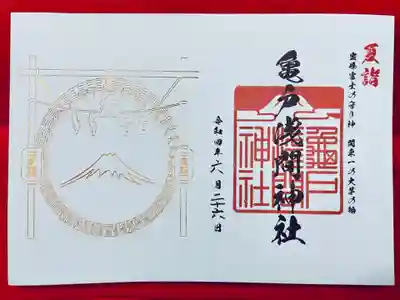 夏詣
霊峰富士の守り神　関東一の大茅の輪
亀戸浅間神社
龜戸
浅間
神社
令和四年六月二十六日